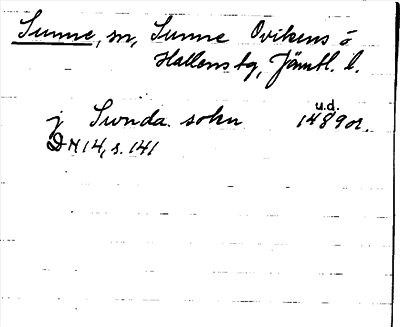 Sunne, sn, Sunne Ovikens o
Hallens tg, Jämtl. l.
j Swnda sokn u.d. 1489 or.
DN 14, s. 141